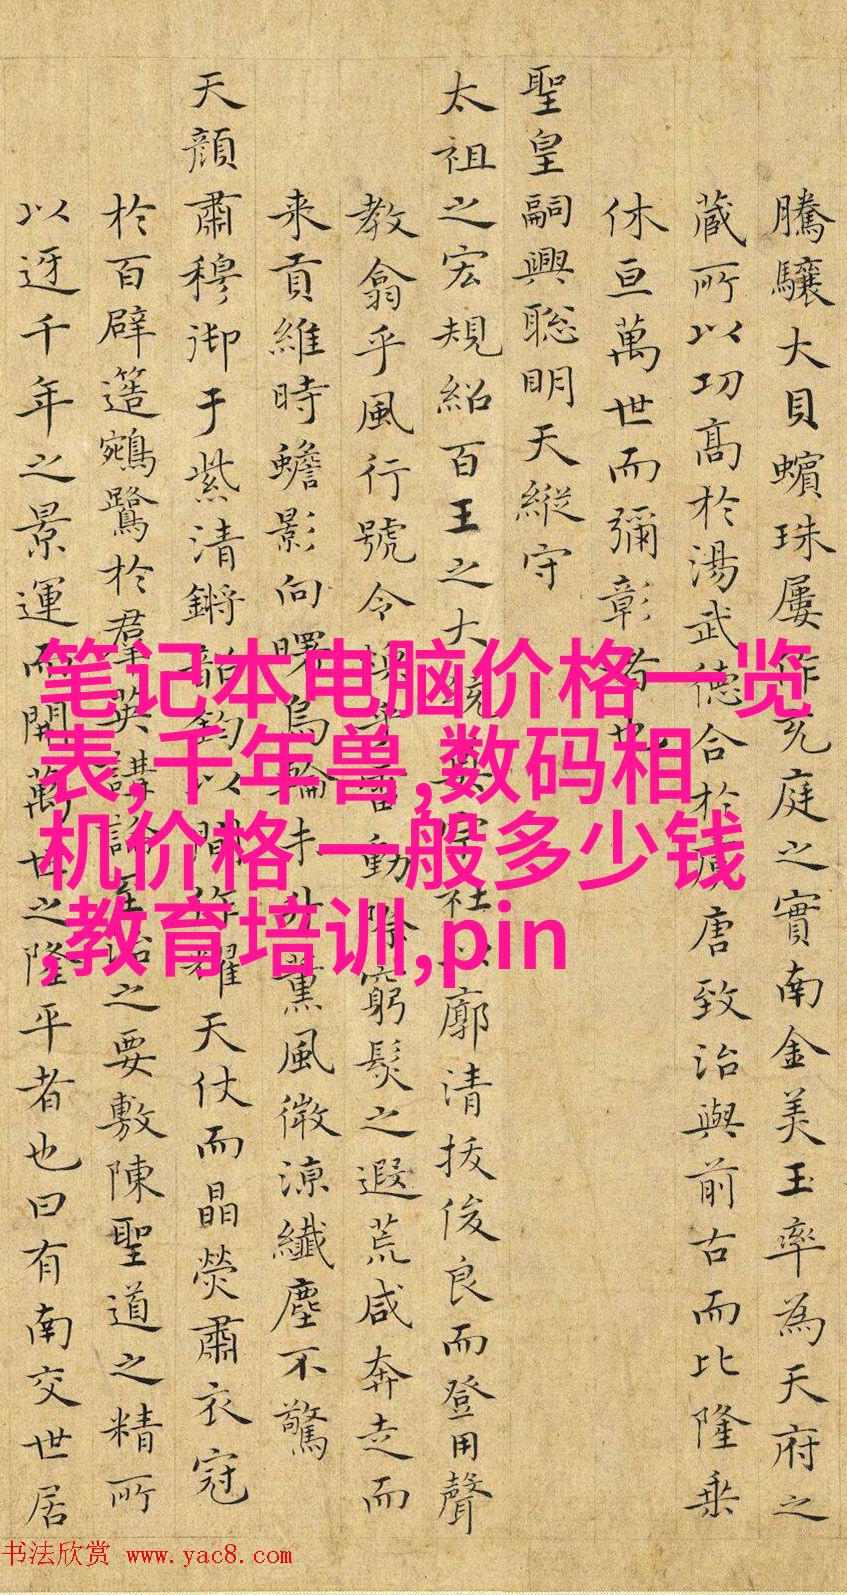 騰驤大貝蠙珠屢作充庭之實南金美玉率為天府之
藏所以功高於湯武德合於虞唐致治與前古而比隆乘
休亘萬世而彌彰者也
聖皇嗣興聡明天縱守
太祖之宏規紹百王之大統宗社以廓清拔俊良而登用聲
教翕乎風行號令雷動際窮髮之遐荒咸奔走而
来貢維時蟾影向曙烏輪未升薰風微涼纖塵不驚
天顏肅穆御于紫清鏘韶鈞以間作耀天仗而晶熒肅衣冠
於百辟簉鵷鷺於羣英講論至治之要敷陳聖道之精所
以迓千年之景運而開萬世之隆平者也曰有南交世居
笔记本电脑价格一览
表,千年兽,数码相
机价格 一般多少钱
,教育培训,pin
书法欣赏 www.yac8.com